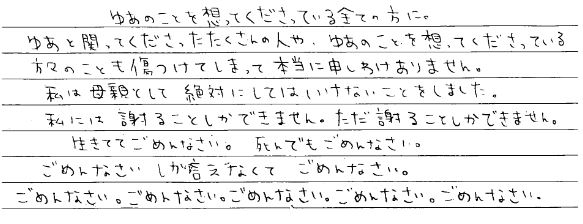 ゆあのことを想ってくださっている全ての方に。
ゆあと関ってくださったたくさんの人や、ゆあのことを想ってくださっている
方々のことも傷つけてしまって本当に申しわけありません。
私は母親として絶対にしてはいけないことをしました。
私には謝ることしかできません。ただ謝ることしかできません。
生きててごめんなさい。死んでもごめんなさい。
ごめんなさいしか言えなくてごめんなさい。
ごめんなさい。ごめんなさい。ごめんなさい。ごめんなさい。ごめんなさい。